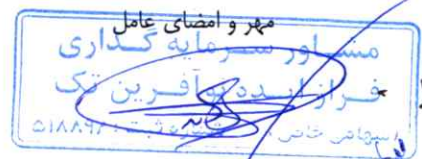 مهر و امضای عامل
مشاور سرمایه گذاری
فراز ایده نوآفرین تک
سهامی خاص ثبت